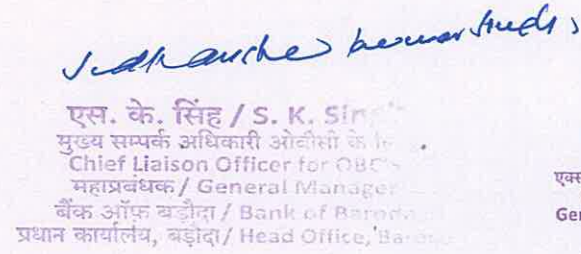 kumar Singh
एस. के. सिंह / S. K. Singh
मुख्य सम्पर्क अधिकारी ओबीसी के
Chief Liaison Officer for OBC's
महाप्रबंधक / General Manager
बैंक ऑफ़ बड़ौदा / Bank of Baroda
प्रधान कार्यालय, बड़ौदा / Head Office, Baroda
एक्स
Gen